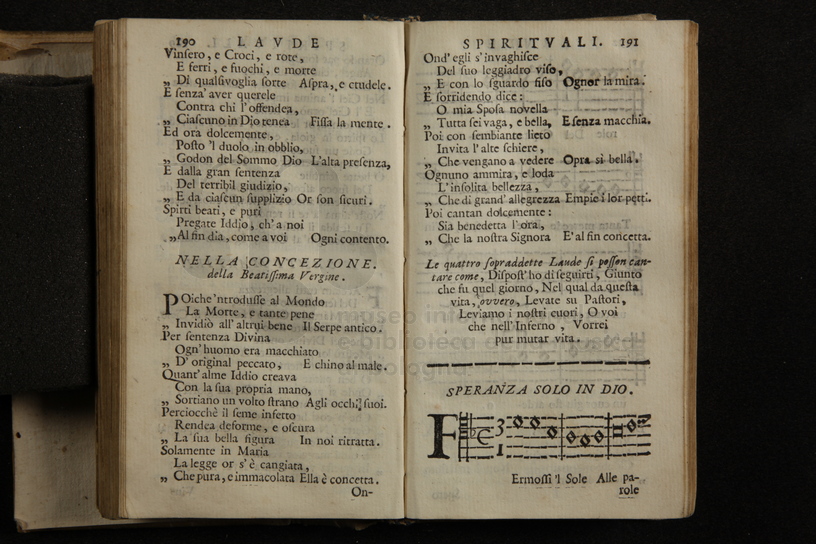 190 LAVDE
Vinsero, e Croci, e rote,
E ferri, e fuochi, e morte
„ Di qualsivoglia sorte Aspra, e crudele.
E senza' aver querele
Contra chi l'offendea,
„ Ciascuno in Dio tenea Fissa la mente.
Ed ora dolcemente,
Posto 'l duolo in obblio,
„ Godon del Sommo Dio L'alta presenza,
E dalla gran sentenza
Del terribil giudizio,
„ E da ciascun supplizio Or son sicuri.
Spirti beati, e puri
Pregate Iddio, ch'a noi
„ Al fin dia, come a voi Ogni contento.
NELLA CONCEZIONE.
della Beatissima Vergine.
POiche 'ntrodusse al Mondo
La Morte, e tante pene
„ Invidiò all'altrui bene Il Serpe antico.
Per sentenza Divina
Ogn'huomo era macchiato
„ D'original peccato, E chino al male.
Quant'alme Iddio creava
Con la sua propria mano,
„ Sortiano un volto strano Agli occhi suoi.
Perciocchè il seme infetto
Rendea deforme, e oscura
„ La sua bella figura In noi ritratta.
Solamente in Maria
La legge or s'è cangiata,
„ Che pura, e immacolata Ella è concetta.
On-
SPIRITVALI. 191
Ond'egli s'invaghisce
Del suo leggiadro viso,
„ E con lo sguardo fiso Ognor la mira.
E sorridendo dice:
O mia Sposa novella
„ Tutta sei vaga, e bella, E senza macchia.
Poi con sembiante lieto
Invita l'alte schiere,
„ Che vengano a vedere Opra sì bella.
Ognuno ammira, e loda
L'insolita bellezza,
„ Che di grand'allegrezza Empie i lor petti.
Poi cantan dolcemente:
Sia benedetta l'ora,
„ Che la nostra Signora E'al fin concetta.
Le quattro sopraddette Laude si posson can-
tare come, Dispost'ho di seguirti, Giunto
che fu quel giorno, Nel qual da questa
vita, ovvero, Levate su Pastori,
Leviamo i nostri cuori, O voi
che nell'Inferno, Vorrei
pur mutar vita.
SPERANZA SOLO IN DIO.
F 3 1
Ermossi 'l Sole Alle pa-
role